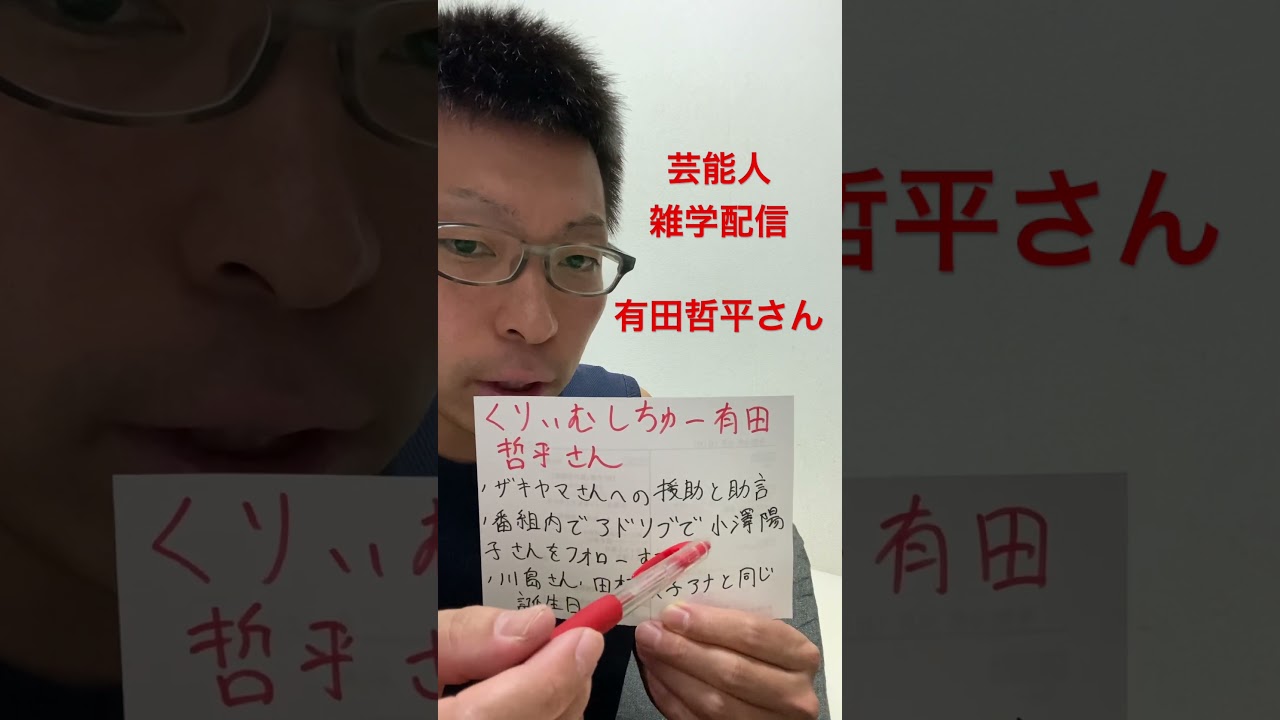 芸能人
雑学配信
有田哲平さん
哲平さん
くりぃむしちゅー有田
哲平さん
・ザキヤマさんへの援助と助言
・番組内でアドリブで小澤陽
子さんをフォロー
・川島さん・田村 子アナと同じ
誕生日
くりぃむ
哲平さ
有田